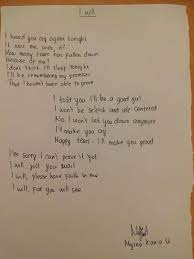 I will
I heard you cry again tonight
It was me, was it?
How many tears has fallen down
because of me?
I don't think I'll sleep tonight
I'll be remembering my promises
That I haven't been able to prove
I told you I'll be a good girl
I won't be selfish and self-centered
No, I won't let you down anymore
I'll make you cry
Happy tears - I'll make you proud
I'm sorry I can't prove it yet
I will, just you wait
I will, please have faith in me
I will, for you will see
Nyino Kania U